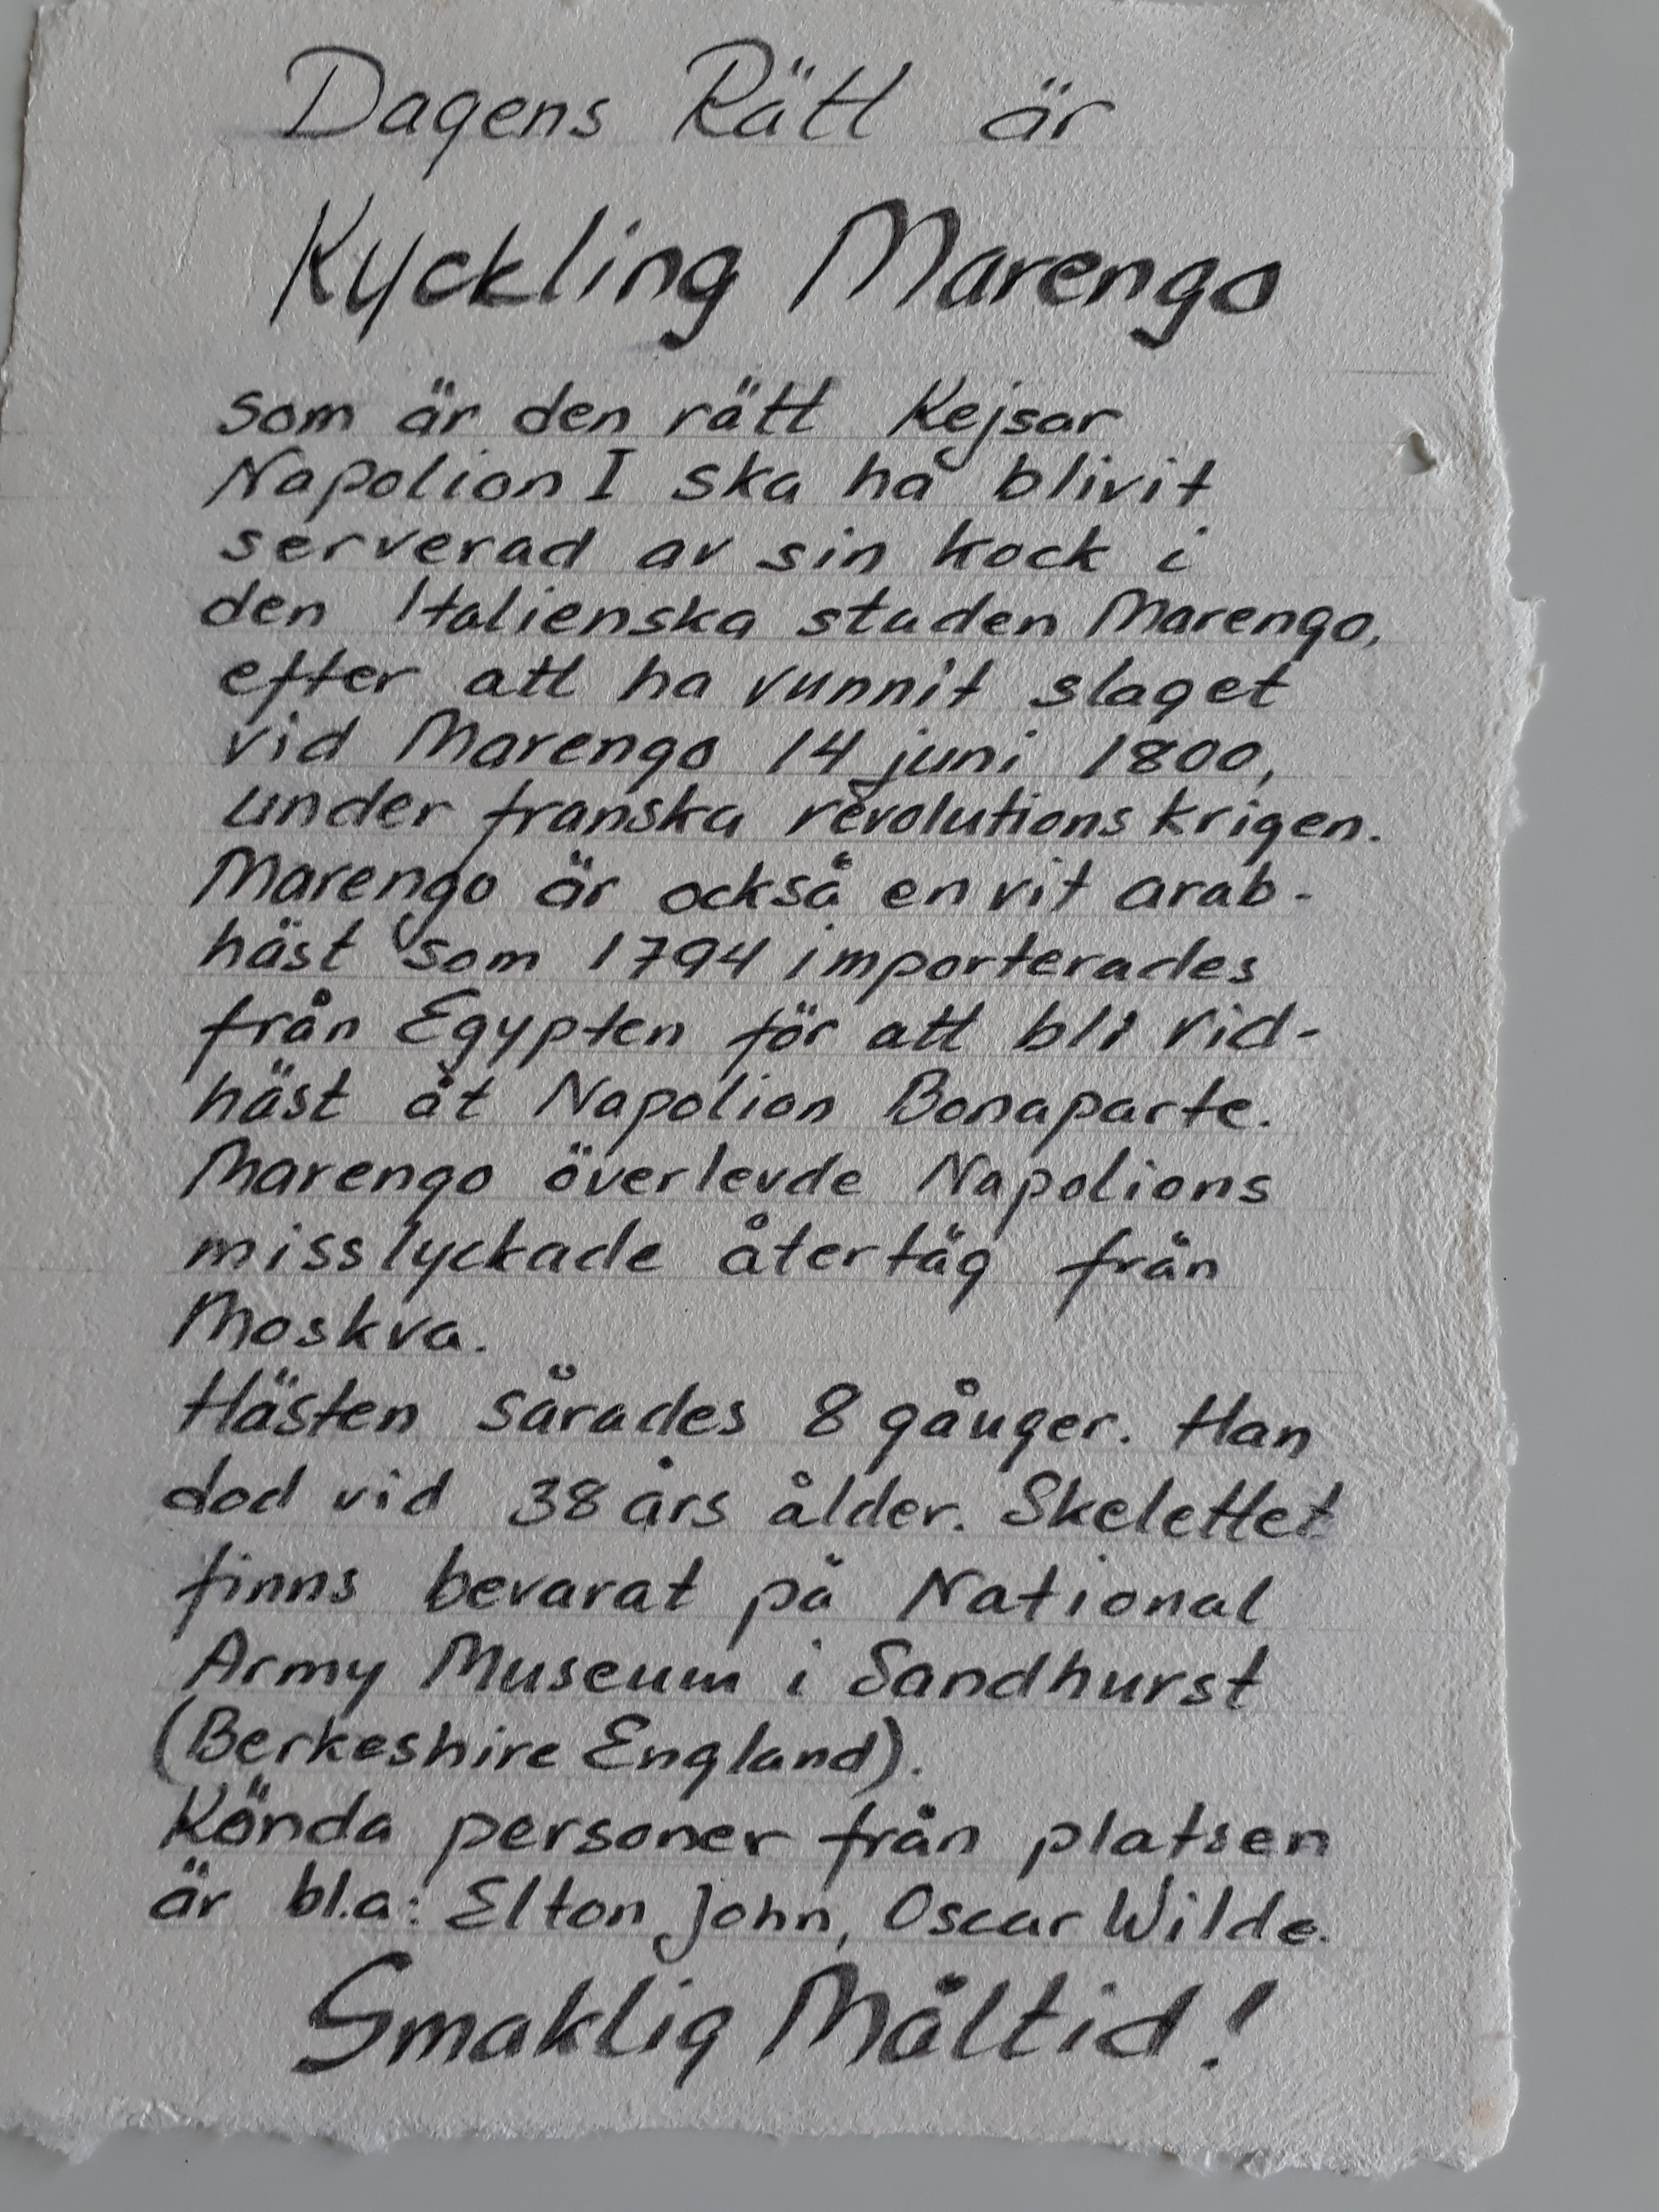 Dagens Rätt är
Kyckling Marengo
som är den rätt Kejsar
Napolion I ska ha blivit
serverad av sin kock i
den Italienska staden Marengo,
efter att ha vunnit slaget
vid Marengo 14 juni 1800,
under franska revolutionskrigen.
Marengo är också en vit arab-
häst som 1794 importerades
från Egypten för att bli rid-
häst åt Napolion Bonaparte.
Marengo överlevde Napolions
misslyckade återtåg från
Moskva.
Hästen sårades 8 gånger. Han
dod vid 38 års ålder. Skelettet
finns bevarat på National
Army Museum i Sandhurst
(Berkeshire England).
Kända personer från platsen
är bl.a: Elton John, Oscar Wilde.
Smaklig Måltid!